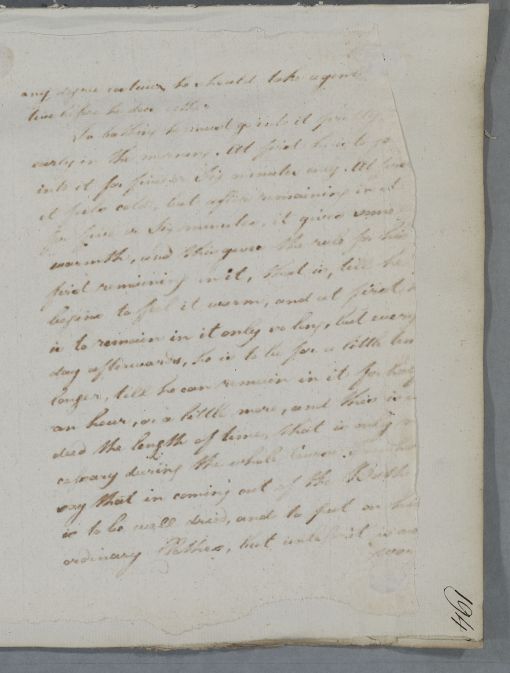 any degree costive, he should take a gent
tive before he does either.
In bathing he must go into it pretty
early in the morning. At first he is to go
into it for five or six minutes only. At first
it feels cold, but after remaining in it
for five or six minutes, it gives some
warmth, and this gives the rule for his
first remaining in it, that is, till he
begins to feel it warm, and at first, h
is to remain in it only so long, but every
day afterwards, he is to be for a little tim
longer, till he can remain in it for half
an hour, or a little more, and this is in
deed the length of time that is only n
cessary during the whole Course.
say that in coming out of the Bath he
is to be well dried, and to put on his
ordinary Clothes, but unless it is a
461